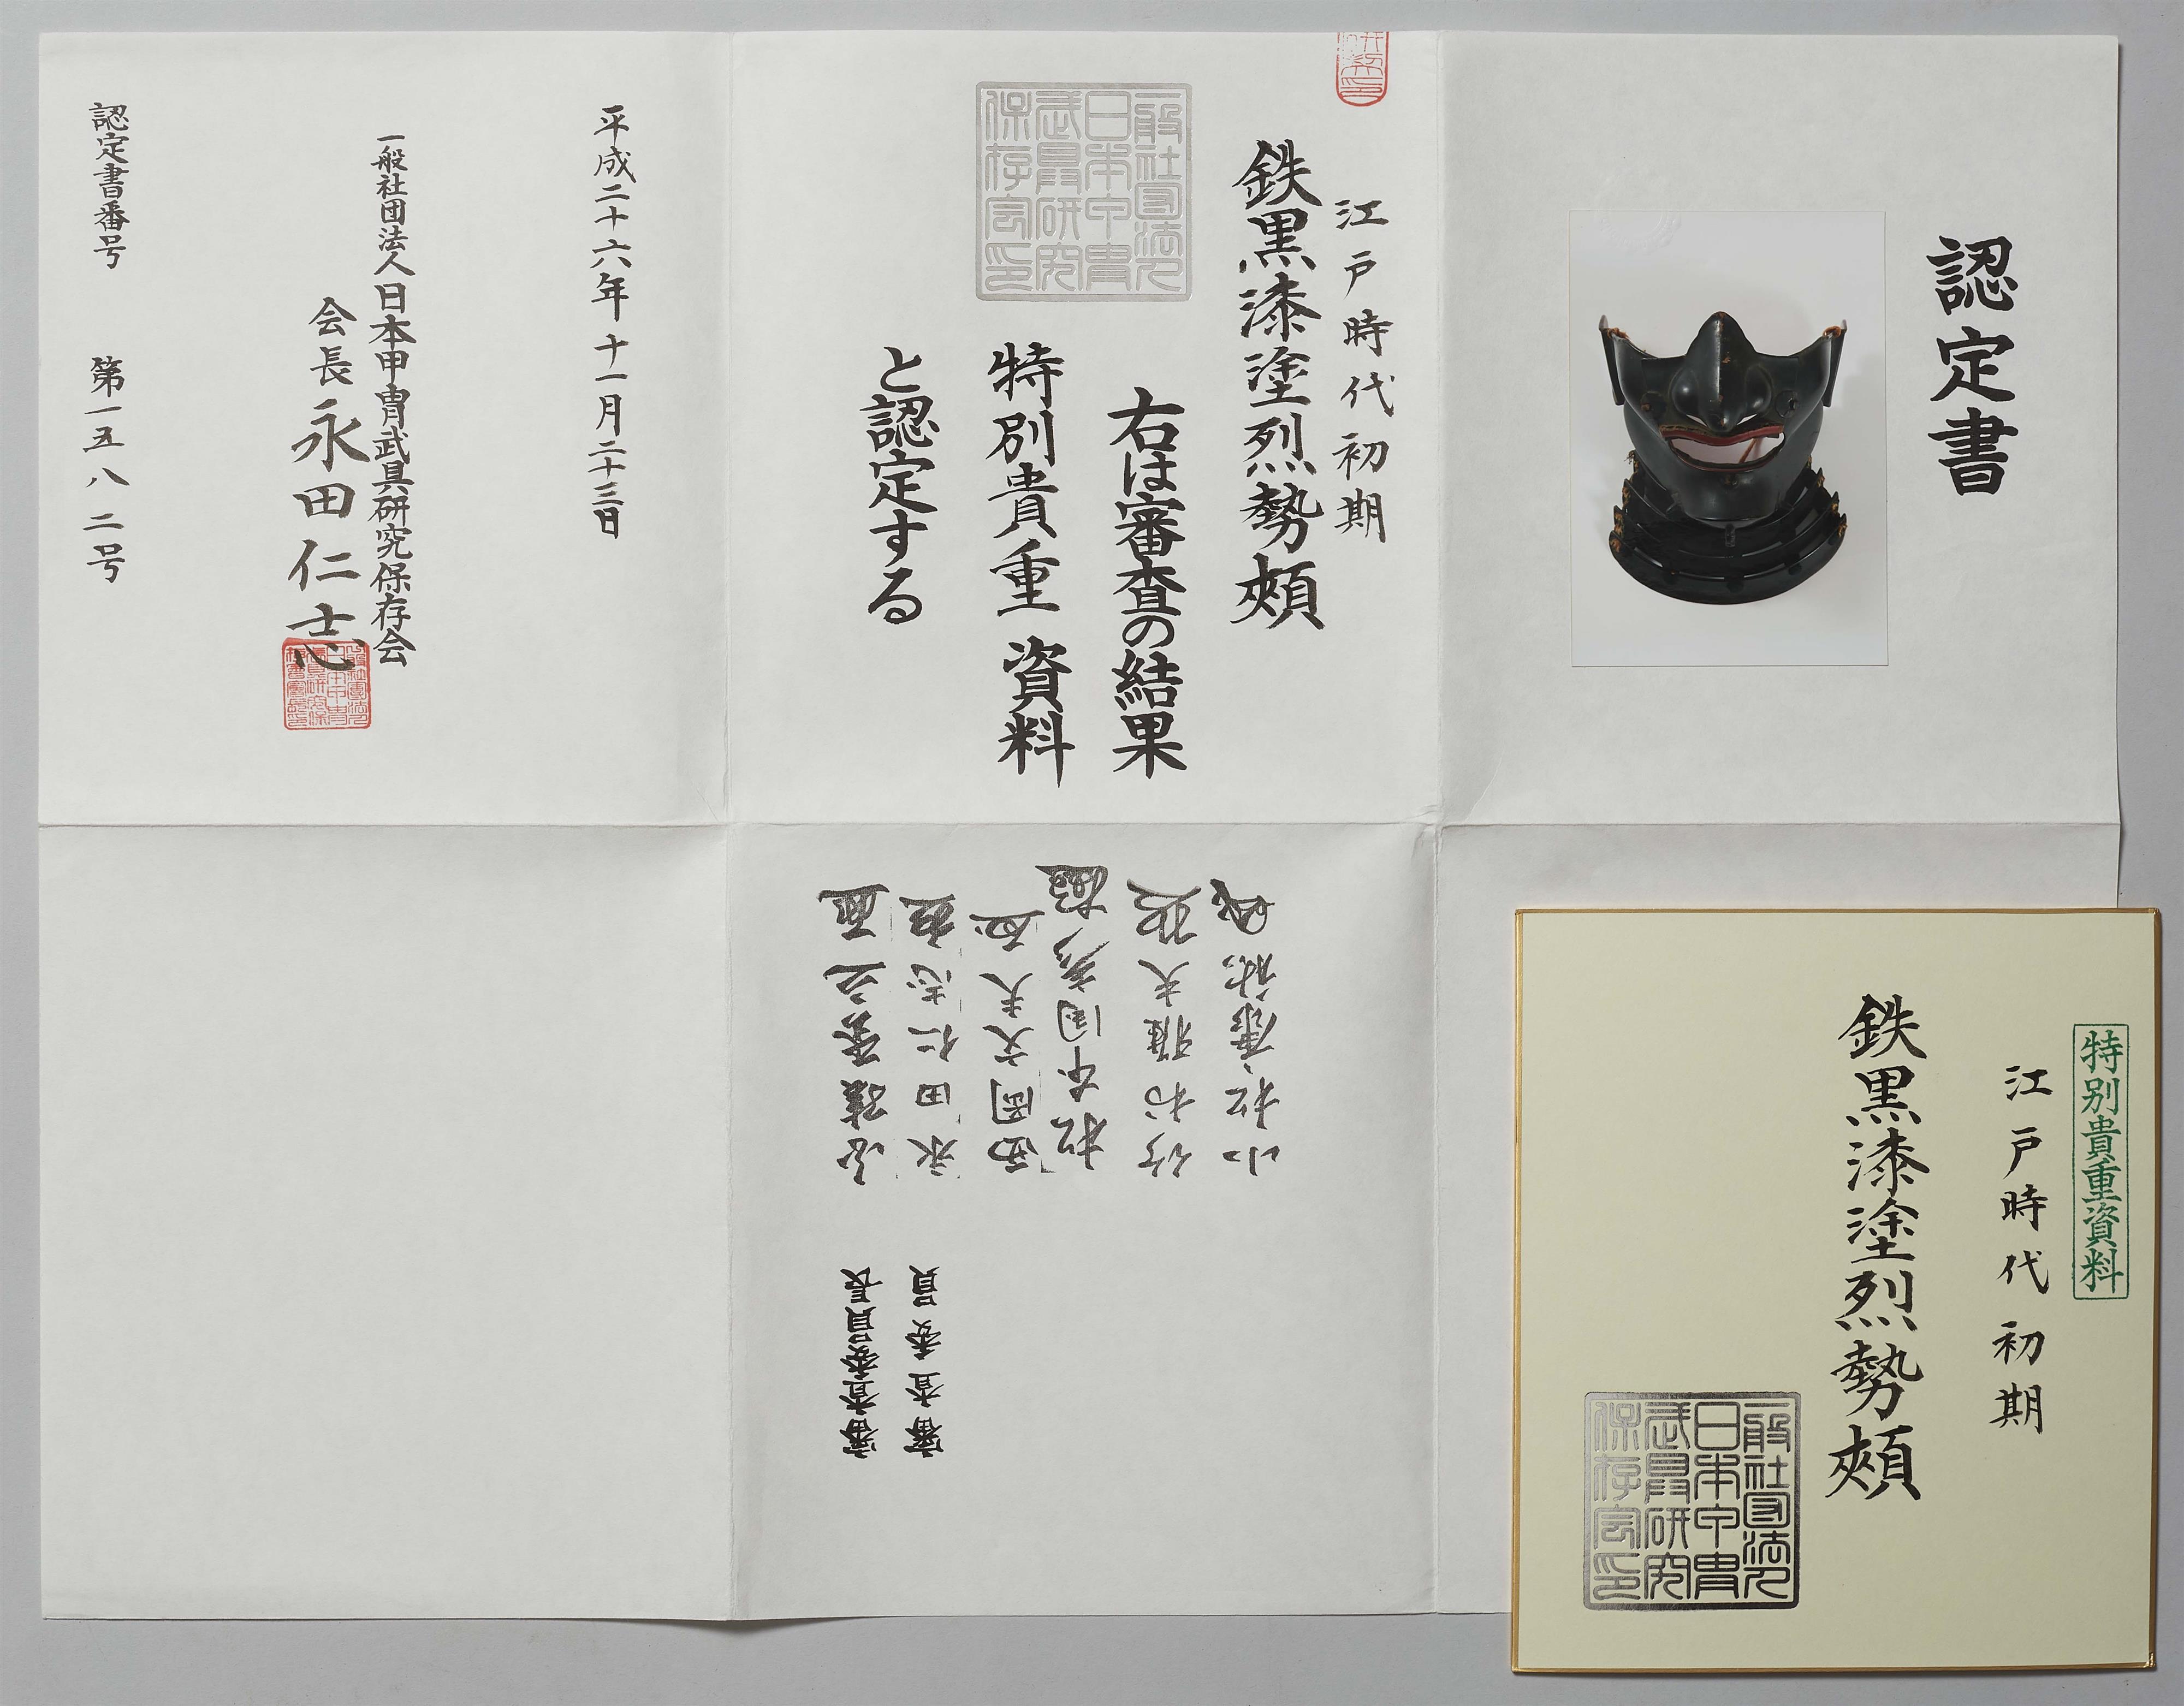 認定書
江戸時代初期
鉄黒漆塗烈勢頬
右は審査の結果
特別貴重資料
と認定する
一般社団法人
日本甲冑
武具研究
保存会印
平成二十六年十一月二十三日
一般社団法人日本甲冑武具研究保存会
会長永田仁志
認定書番号 第一五八二号
審査委員長
審査委員
永田仁志
西岡文夫
竹村雅夫
特別貴重資料
江戸時代初期
鉄黒漆塗烈勢頬
一般社団法人
日本甲冑
武具研究
保存会印